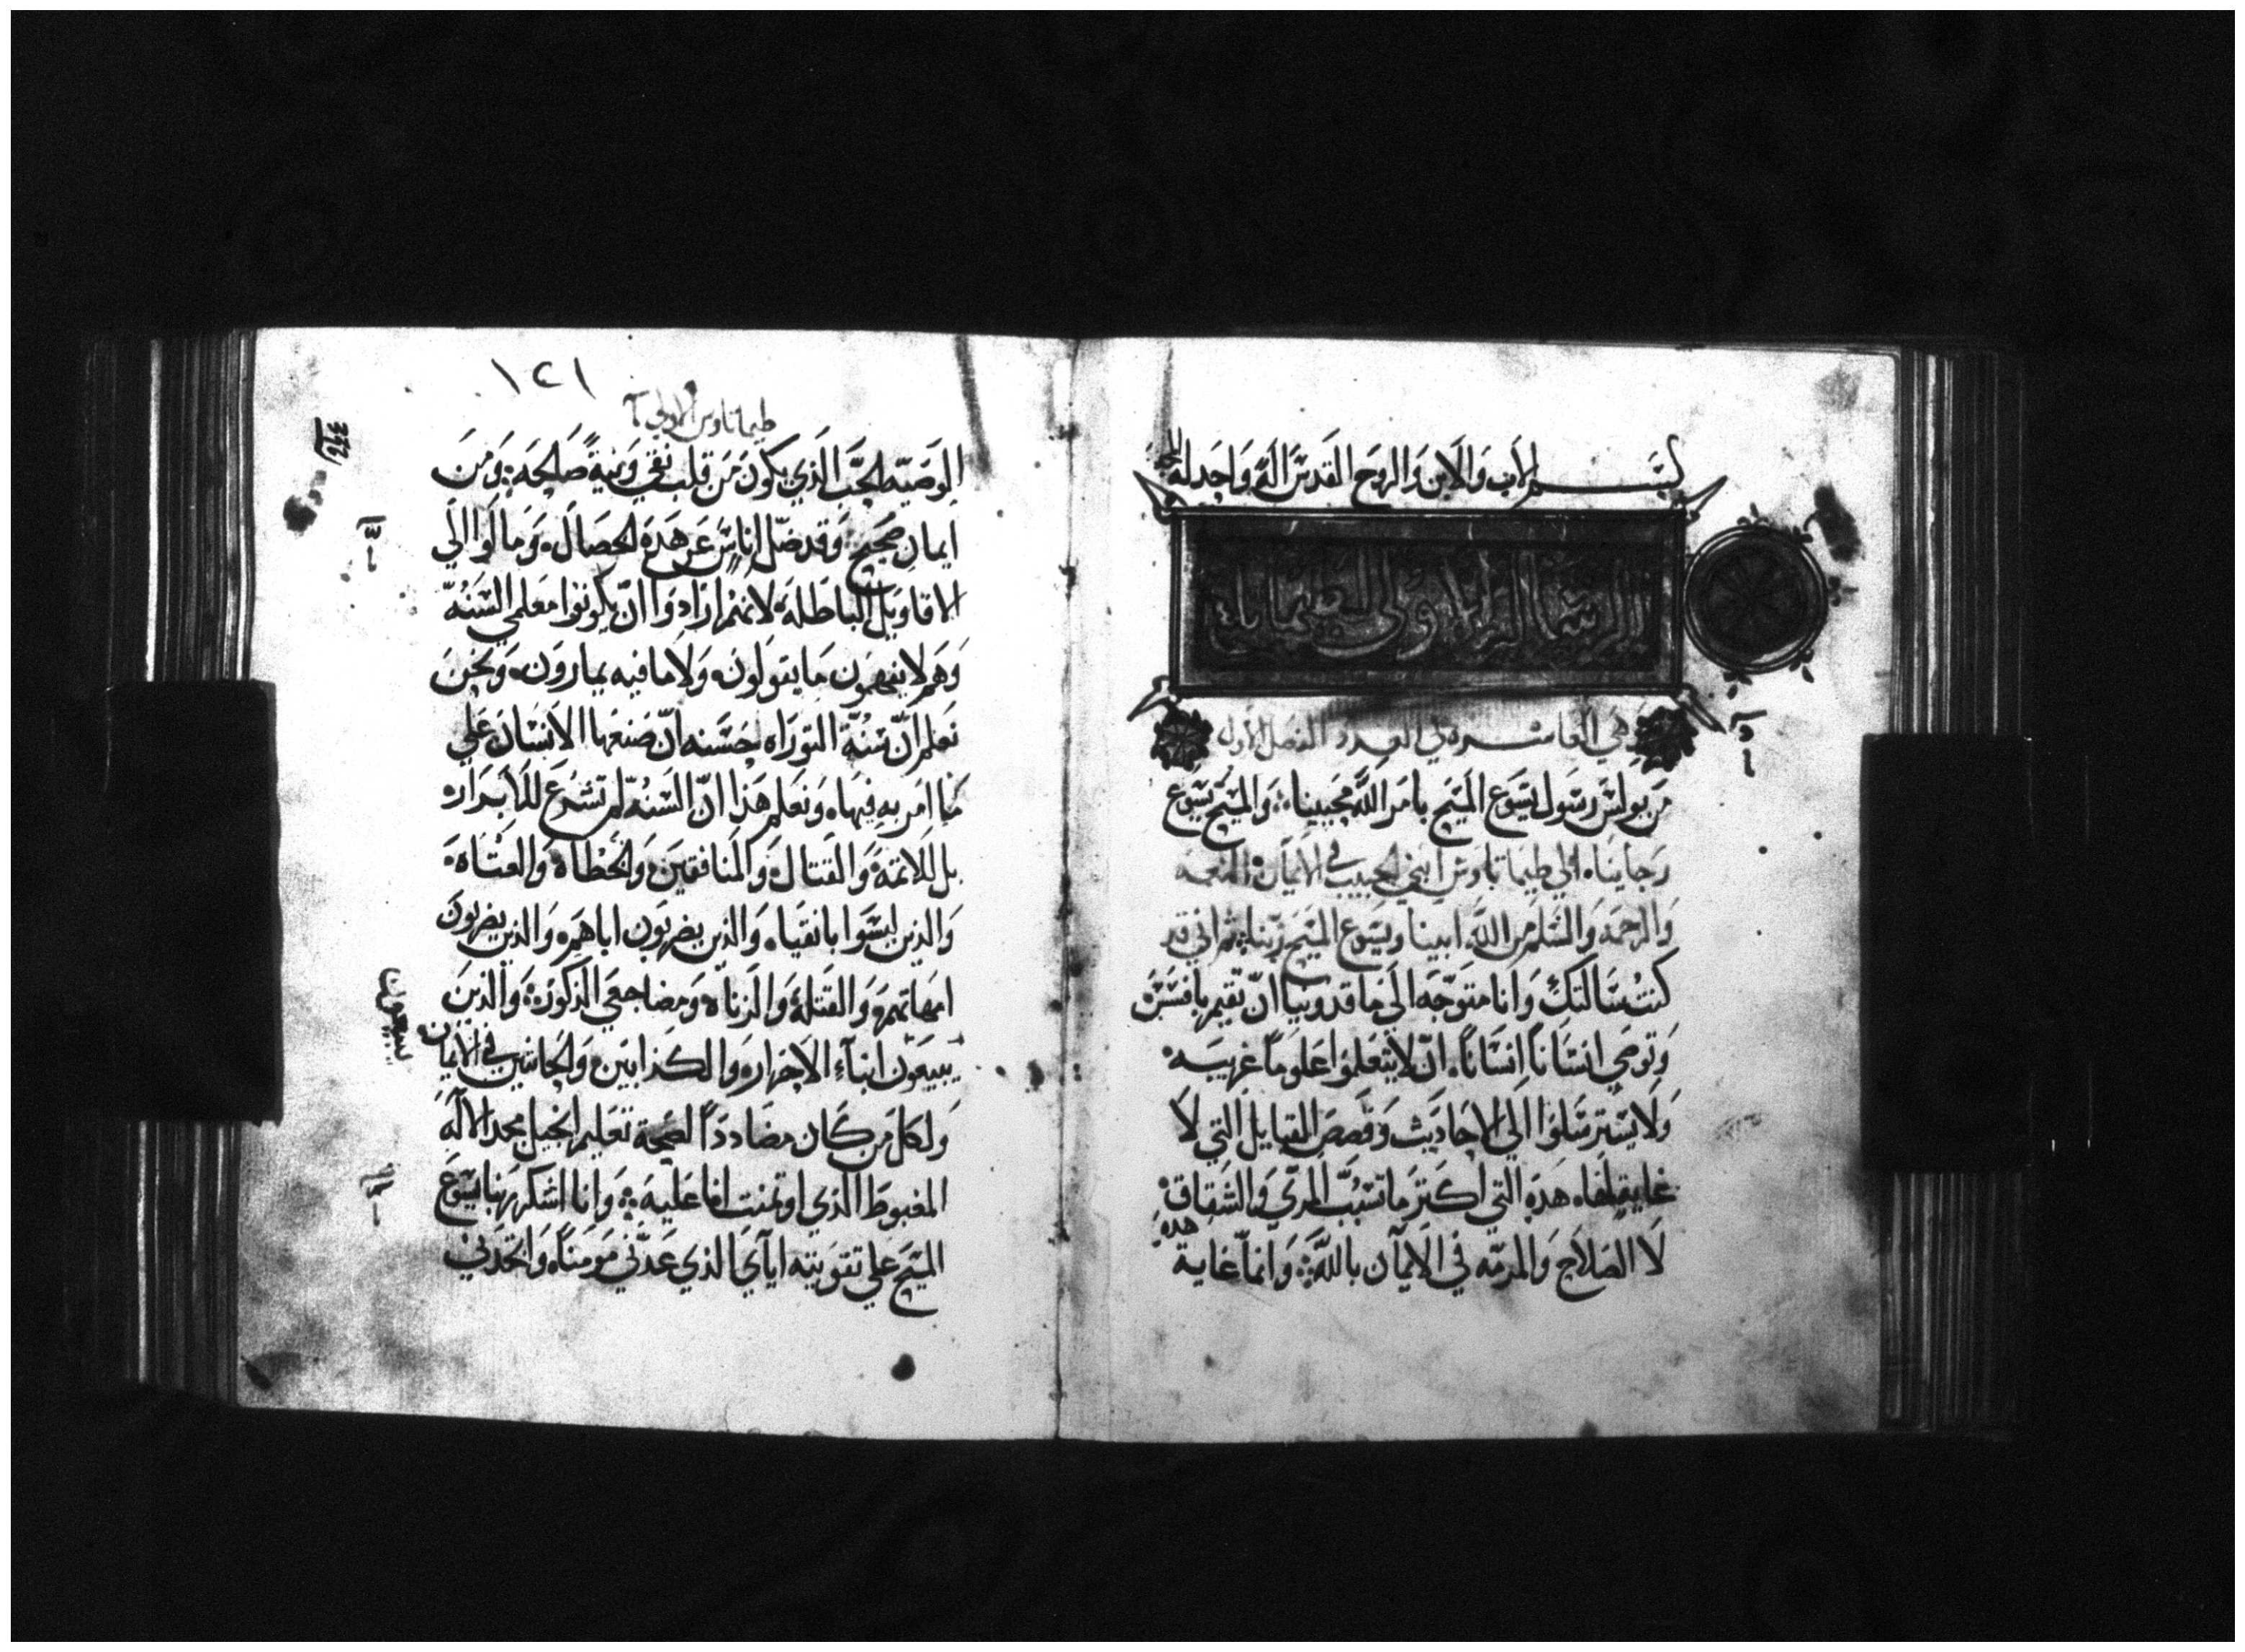 بسم الاب والابن والروح القدس اله واحد له المجد
الرسالة الاولى الى طيماثاوس
وهي العاشرة في العدد الفصل الاول
من بولس رسول يسوع المسيح بامر الله محيينا والمسيح يسوع
رجاينا الي طيماتاوس ابني الحبيب في الايمان النعمه
والرحمه والسلم من الله ابينا ويسوع المسيح ربنا ثم اني قد
كنت سالتك وانا متوجه الى ماقدونيا ان تقيم بافسس
وتوصي انسانا انسانا ان لا يتعلموا علوما غريبه
ولا يسترسلوا الي الاحاديث وقصص القبايل التي لا
غاية لها هذه التي اكثر ما تسبب المري والشقاق
لا الصلاح والمرمه في الايمان بالله وانما غاية هذه
١٢١
طيماتاوس الاولي
الوصيه الحب الذي يكون من قلب نقي ونية صالحه ومن
ايمان صحيح وقد ضل اناس عن هذه الخصال ومالوا الي
الاقاويل الباطله لانهم ارادوا ان يكونوا معلمي السنه
وهم لا يفهمون ما يقولون ولا ما فيه يمارون ونحن
نعلم ان سنة التوراه حسنه ان صنعها الانسان علي
ما امر به فيها ونعلم هذا ان السنه لم تشرع للابرار
بل للاتمة والقتال والمنافقين والخطاه والعتاه
والذين ليسوا باتقياه والذين يضربون اباهم والذين يضربون
امهاتهم والقتلة والزناه ومضاجعي الذكور والذين
يبيعون ابناء الاحرار والكذابين والحانثين في الايمان
ولكل من كان مضاددا لصحة تعليم انجيل مجد الاله
المغبوط الذي اوتمنت انا عليه وانا اشكر ربنا يسوع
المسيح علي تقويته اياي الذي عدني مومنا واتخذني